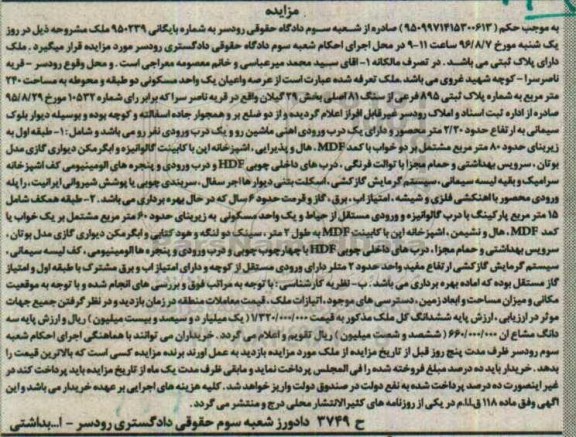 مزایده
به موجب حکم (۹۵۰۹۹۷۱۴۱۵۳۰۰۶۱۳) صادره از شعبه سوم دادگاه حقوقی رودسر به شماره بایگانی ۹۵۰۲۳۹ ملک مشروحه ذیل در روز
یک شنبه مورخ ۹۶/۸/۷ از ساعت ۱۱-۹ در محل اجرای احکام شعبه سوم دادگاه حقوقی دادگستری رودسر مورد مزایده قرار میگیرد. ملک
دارای پلاک ثبتی می باشد. در تصرف مالکانه ۱- آقای سید محمد میرعباسی و خانم معصومه معراجی است. و محل وقوع رودسر - قریه
ناصرسرا - کوچه شهید غروی می باشد. ملک تعرفه شده عبارت است از عرصه و اعیان یک واحد مسکونی دو طبقه و محوطه به مساحت ۲۴۰
متر مربع به شماره پلاک ثبتی ۸۹۵ فرعی از سنگ ۸۱ اصلی بخش ۲۹ گیلان واقع در قریه ناصر سرا که برابر رای شماره ۱۰۵۳۲ مورخ ۹۵/۸/۲۹
صادره از اداره ثبت اسناد و املاک رودسر غیرقابل افراز اعلام گردیده و از دو ضلع بر و همجوار جاده اسفالته و کوچه بوده و بوسیله دیوار بلوک
سیمانی به ارتفاع حدود ۲/۲۰ متر محصور و دارای یک درب ورودی آهنی ماشین رو و یک درب ورودی نفر رو می باشد و شامل: ۱- طبقه اول به
زیربنای حدود ۸۰ متر مربع مشتمل بر دو خواب با کمد MDF، هال و پذیرایی، آشپزخانه اپن با کابینت گالوانیزه و آبگرمکن دیواری گازی مدل
بوتان، سرویس بهداشتی و حمام مجزا با توالت فرنگی، درب های داخلی چوبی HDF و درب ورودی و پنجره های آلومینیومی کف آشپزخانه
سرامیک و بقیه لیسه سیمانی، سیستم گرمایش گازکشی، اسکلت بتنی دیوارها آجر سفال، سربندی چوبی با پوشش شیروانی ایرانیت، راپله
ورودی محصور با آهنکشی فلزی و شیشه، امتیاز آب، برق، گاز و قرمت حدود ۶ سال که در حال بهره برداری می باشد. ۲- طبقه همکف شامل
۱۵ متر مربع پارکینگ با درب گالوانیزه و ورودی مستقل از حیاط و یک واحد مسکونی به زیربنای حدود ۶۰ متر مربع مشتمل بر یک خواب با
کمد MDF، هال و نشیمن، آشپزخانه اپن با کابینت MDF به طول ۲ متر، سینک دو لنگه و هود کتابی و آبگرمکن دیواری گازی مدل بوتان،
سرویس بهداشتی و حمام مجزا، درب های داخلی چوبی HDF با چهارچوب چوبی و درب ورودی و پنجره ها آلومینیومی، کف لیسه سیمانی،
سیستم گرمایش گازکشی ارتفاع مفید واحد حدود ۲ متر دارای ورودی مستقل از کوچه و دارای امتیاز آب و برق مشترک با طبقه اول و امتیاز
گاز مستقل بوده که آماده بهره برداری می باشد. ب- نظریه کارشناسی: با توجه به مراتب فوق و بررسی های انجام شده و با توجه به موقعیت
مکانی و میزان مساحت و ابعاد زمین، دسترسی های موجود، اتیازات ملک، قیمت معاملات منطقه در زمان بازدید و در نظر گرفتن جمیع جهات
موثر در ارزیابی، ارزش پایه ششدانگ کل ملک مذکور به قیمت ۷/۳۲۰/۰۰۰/۰۰۰ (یک میلیارد و سیصد و بیست میلیون) ریال و ارزش پایه سه
دانگ مشاع آن ۶۶۰/۰۰۰/۰۰۰ (ششصد و شصت میلیون) ریال تقویم و اعلام می گردد. خریداران می توانند با هماهنگی اجرای احکام شعبه
سوم رودسر ظرف مدت پنج روز قبل از تاریخ مزایده از ملک مورد مزایده بازدید به عمل آورند برنده مزایده کسی است که بالاترین قیمت را
بدهد. خریدار باید ده درصد مبلغ فروخته شده را فی المجلس پرداخت نماید و مابقی ظرف مدت یک ماه از تاریخ مزایده باید پرداخت کند در
غیر اینصورت ده درصد پرداخت شده به نفع دولت در صندوق دولت واریز خواهد شد. کلیه هزینه های اجرایی بر عهده خریدار می باشد و این
آگهی وفق ماده ۱۱۸ ق.ا.م در یکی از روزنامه های کثیرالانتشار محلی درج و منتشر می گردد.
ح ۳۷۴۹ دادورز شعبه سوم حقوقی دادگستری رودسر - ا...بداشتی